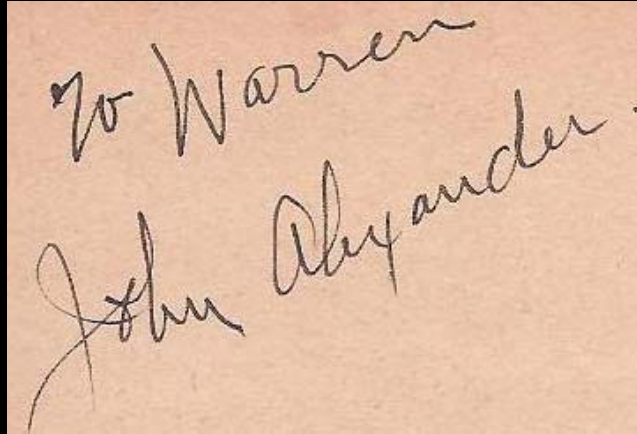 To Warren
John Alexander.